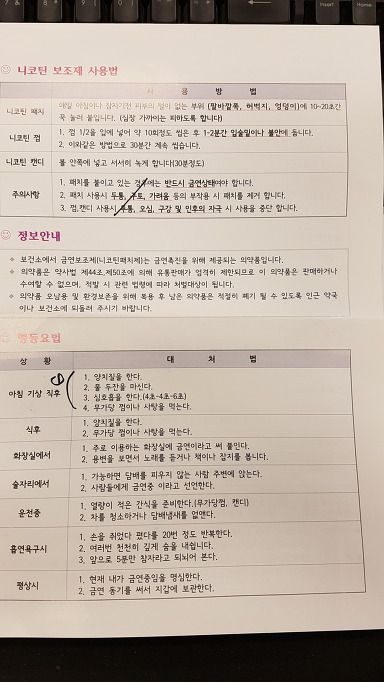 니코틴 보조제 사용법
사 용 방 법
니코틴 패치
매일 아침이나 잠자기전 피부의 털이 없는 부위 (팔바깥쪽, 허벅지, 엉덩이)에 10~20초간
꾹 눌러 붙입니다. (심장 가까이는 피하도록 합니다)
니코틴 껌
1. 껌 1/2을 입에 넣어 약 10회정도 씹은 후 1-2분간 입술밑이나 볼안에 둡니다.
2. 이와같은 방법으로 30분간 계속 씹습니다.
니코틴 캔디
볼 안쪽에 넣고 서서히 녹게 합니다(30분정도)
주의사항
1. 패치를 붙이고 있는 경우에는 반드시 금연상태여야 합니다.
2. 패치 사용시 두통, 구토, 가려움 등의 부작용 시 패치를 제거 합니다.
3. 껌,캔디 사용시 두통, 오심, 구강 및 인후의 자극 시 사용을 중단 합니다.
정보안내
※ 보건소에서 금연보조제(니코틴패치제)는 금연촉진을 위해 제공되는 의약품입니다.
※ 의약품은 약사법 제44조,제50조에 의해 유통판매가 엄격히 제한되므로 이 의약품은 판매하거나
수여할 수 없으며, 적발 시 관련 법령에 따라 처벌대상이 됩니다.
※ 의약품 오남용 및 환경보존을 위해 복용 후 남은 의약품은 적절히 폐기 될 수 있도록 인근 약국
이나 보건소에 되돌려 주시기 바랍니다.
행동요법
상 황
대 처 법
아침 기상 직후
1. 양치질을 한다.
2. 물 두잔을 마신다.
3. 심호흡을 한다.(4초-4초-6초)
4. 무가당 껌이나 사탕을 먹는다.
식후
1. 양치질을 한다.
2. 무가당 껌이나 사탕을 먹는다.
화장실에서
1. 주로 이용하는 화장실에 금연이라고 써 붙인다.
2. 용변을 보면서 노래를 듣거나 책이나 잡지를 봅니다.
술자리에서
1. 가능하면 담배를 피우지 않는 사람 주변에 앉는다.
2. 사람들에게 금연중 이라고 선언한다.
운전중
1. 열량이 적은 간식을 준비한다.(무가당껌, 캔디)
2. 차를 청소하거나 담배냄새를 없앤다.
흡연욕구시
1. 손을 쥐었다 폈다를 20번 정도 반복한다.
2. 여러번 천천히 깊게 숨을 내쉽니다.
3. 앞으로 5분만 참자라고 되뇌어 본다.
평상시
1. 현재 내가 금연중임을 명심한다.
2. 금연 동기를 써서 지갑에 보관한다.